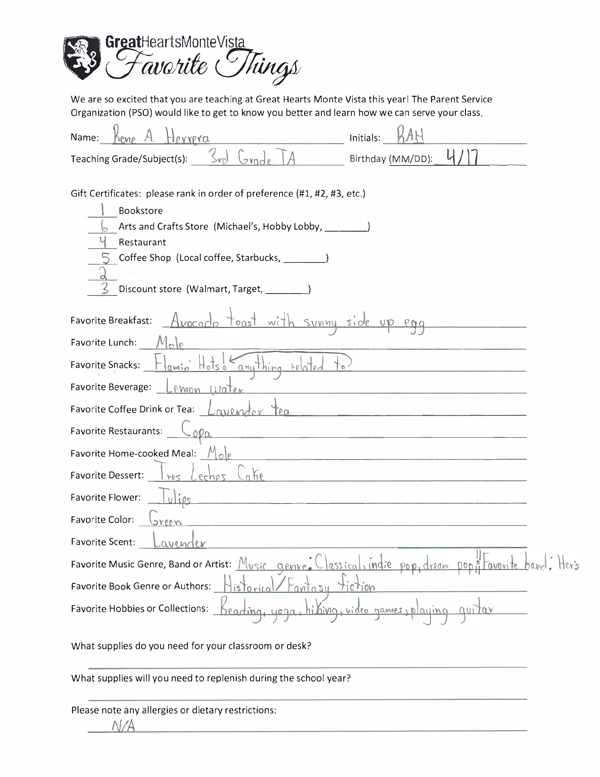 GreatHeartsMonteVista
Favorite Things
We are so excited that you are teaching at Great Hearts Monte Vista this year! The Parent Service
Organization (PSO) would like to get to know you better and learn how we can serve your class.
Name: Rene A. Herrera Initials: RAH
Teaching Grade/Subject(s): 3rd Grade TA Birthday (MM/DD): 4/17
Gift Certificates: please rank in order of preference (#1, #2, #3, etc.)
1 Bookstore
6 Arts and Crafts Store (Michael's, Hobby Lobby, ________)
4 Restaurant
5 Coffee Shop (Local coffee, Starbucks, ________)
2
3 Discount store (Walmart, Target, ________)
Favorite Breakfast: Avocado toast with sunny side up egg
Favorite Lunch: Mole
Favorite Snacks: Flamin' Hots! anything related to
Favorite Beverage: Lemon water
Favorite Coffee Drink or Tea: Lavender tea
Favorite Restaurants: Copa
Favorite Home-cooked Meal: Mole
Favorite Dessert: Tres Leches Cake
Favorite Flower: Tulips
Favorite Color: Green
Favorite Scent: Lavender
Favorite Music Genre, Band or Artist: Music genre: Classical, indie pop, dream pop!! Favorite band: Her's
Favorite Book Genre or Authors: Historical/Fantasy fiction
Favorite Hobbies or Collections: Reading, yoga, hiking, video games, playing guitar
What supplies do you need for your classroom or desk?
What supplies will you need to replenish during the school year?
Please note any allergies or dietary restrictions:
N/A